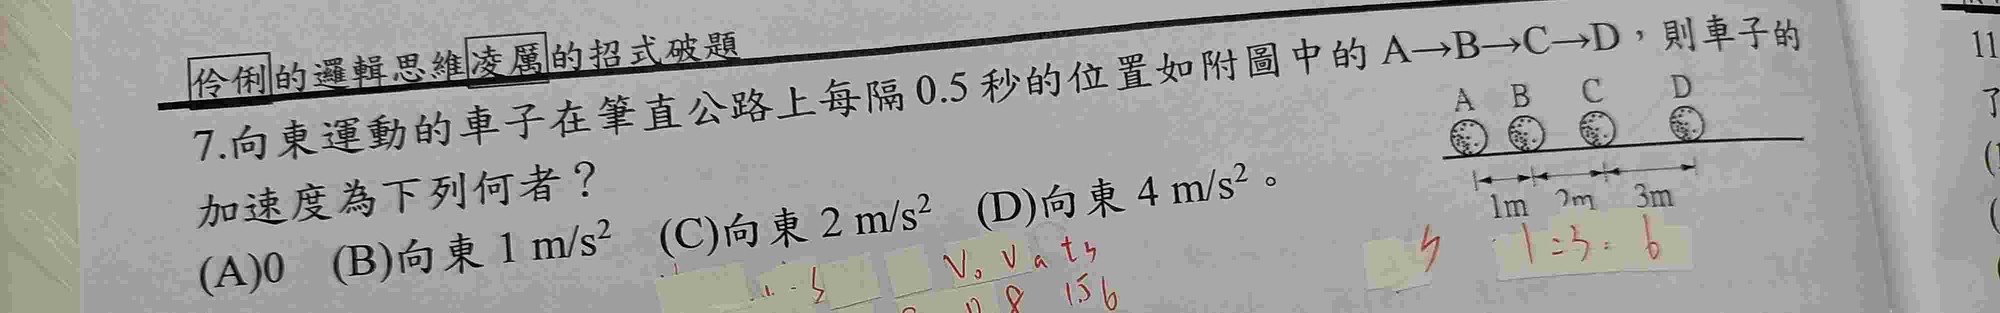 伶俐的邏輯思維凌厲的招式破題
7.向東運動的車子在筆直公路上每隔 0.5 秒的位置如附圖中的 A→B→C→D，則車子的
加速度為下列何者？
(A)0 (B)向東 1 m/s² (C)向東 2 m/s² (D)向東 4 m/s²。
A B C D
1m 2m 3m
V₀ V a t S
8 1.5 6
11